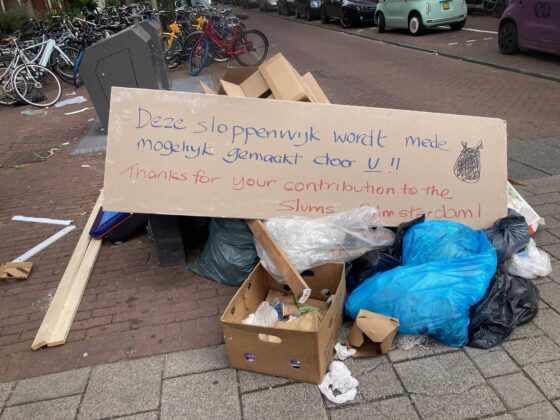 Deze sloppenwijk wordt mede
mogelijk gemaakt door U !!
Thanks for your contribution to the
Slums Amsterdam!